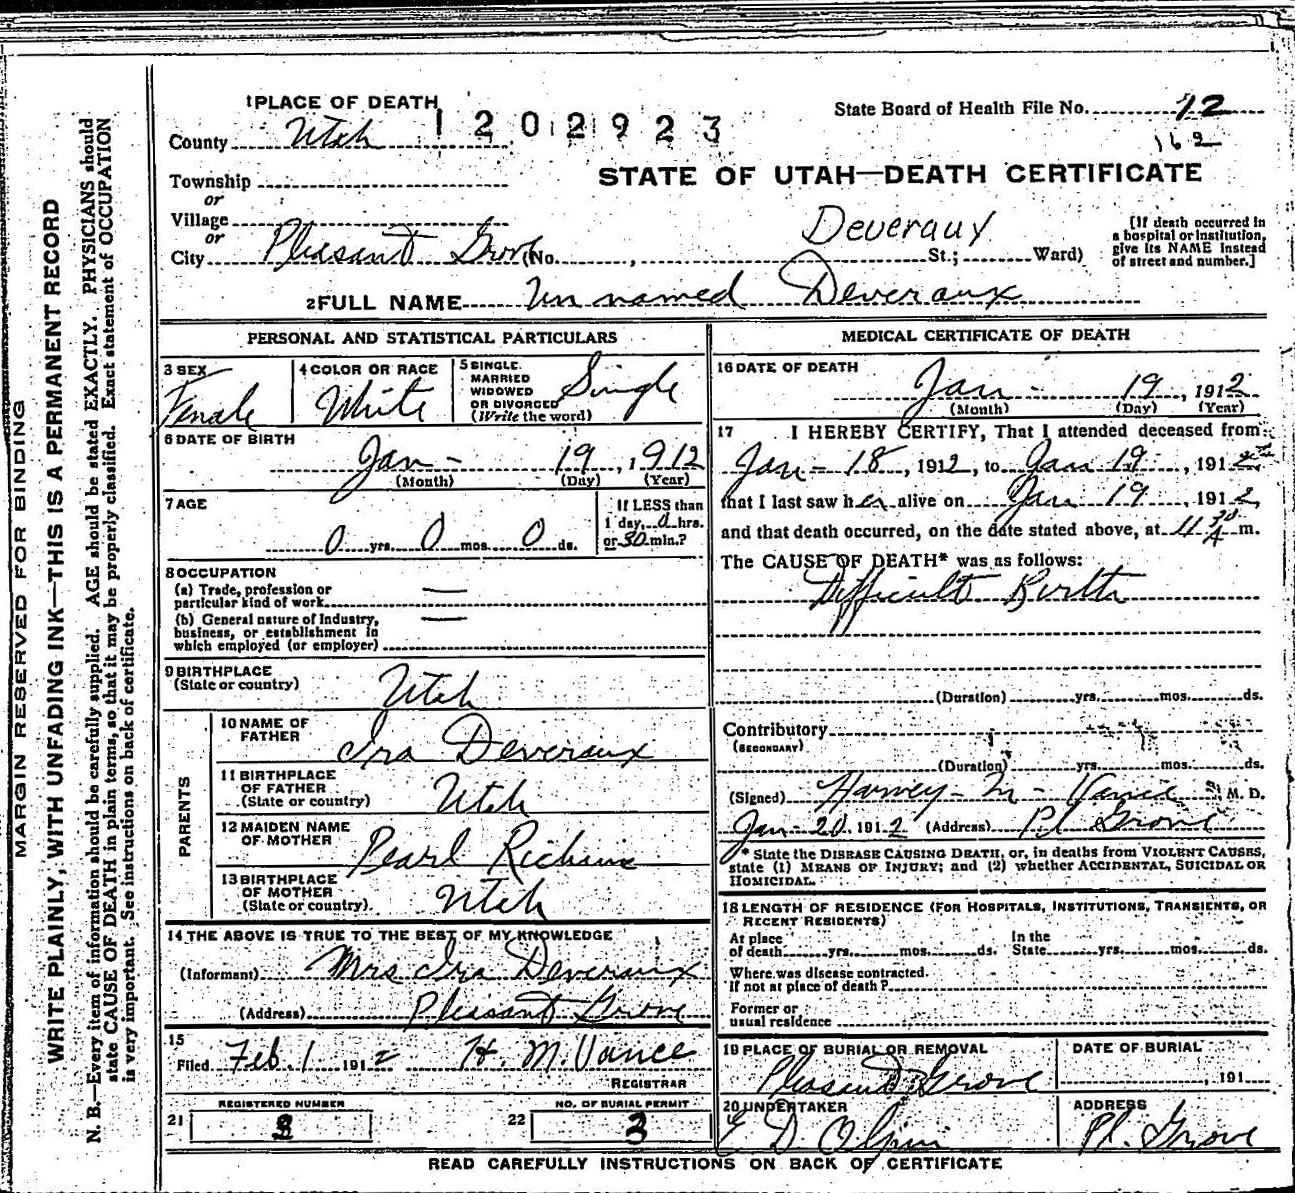 1 PLACE OF DEATH
1202923
State Board of Health File No. 12
162
County Utah
STATE OF UTAH—DEATH CERTIFICATE
Township
or
Village
or
City Pleasant Grove (No. , St.; Ward)
Deveraux
[If death occurred in
a hospital or institution,
give its NAME instead
of street and number.]
2 FULL NAME Un named Deveraux
PERSONAL AND STATISTICAL PARTICULARS
3 SEX
Female
4 COLOR OR RACE
White
5 SINGLE.
MARRIED
WIDOWED
OR DIVORCED
(Write the word)
Single
6 DATE OF BIRTH
Jan - 19, 1912
(Month) (Day) (Year)
7 AGE
0 yrs. 0 mos. 0 ds.
If LESS than
1 day, 0 hrs.
or 30 min.?
8 OCCUPATION
(a) Trade, profession or
particular kind of work —
(b) General nature of Industry, —
business, or establishment in
which employed (or employer)
9 BIRTHPLACE
(State or country) Utah
PARENTS
10 NAME OF
FATHER Ira Deveraux
11 BIRTHPLACE
OF FATHER
(State or country) Utah
12 MAIDEN NAME
OF MOTHER Pearl Richins
13 BIRTHPLACE
OF MOTHER
(State or country) Utah
14 THE ABOVE IS TRUE TO THE BEST OF MY KNOWLEDGE
(Informant) Mrs Ira Deveraux
(Address) Pleasant Grove
15
Filed Feb. 1 1912 H. M. Vance
REGISTRAR
REGISTERED NUMBER
21 3
NO. OF BURIAL PERMIT
22 3
MEDICAL CERTIFICATE OF DEATH
16 DATE OF DEATH
Jan - 19, 1912
(Month) (Day) (Year)
17 I HEREBY CERTIFY, That I attended deceased from
Jan - 18, 1912, to Jan 19, 1912
that I last saw her alive on Jan 19, 1912,
and that death occurred, on the date stated above, at 11 30 A m.
The CAUSE OF DEATH* was as follows:
Difficult Birth
(Duration) yrs. mos. ds.
Contributory
(SECONDARY)
(Duration) yrs. mos. ds.
(Signed) Harvey - M - Vance M. D.
Jan - 20. 1912 (Address) Pl Grove
* State the DISEASE CAUSING DEATH, or, in deaths from VIOLENT CAUSES,
state (1) MEANS OF INJURY; and (2) whether ACCIDENTAL, SUICIDAL OR
HOMICIDAL.
18 LENGTH OF RESIDENCE (FOR HOSPITALS, INSTITUTIONS, TRANSIENTS, OR
RECENT RESIDENTS)
At place
of death yrs. mos. ds.
In the
State yrs. mos. ds.
Where was disease contracted.
If not at place of death?
Former or
usual residence
19 PLACE OF BURIAL OR REMOVAL
Pleasant Grove
DATE OF BURIAL
, 191
20 UNDERTAKER
ADDRESS
Pl. Grove
READ CAREFULLY INSTRUCTIONS ON BACK OF CERTIFICATE
MARGIN RESERVED FOR BINDING
WRITE PLAINLY, WITH UNFADING INK—THIS IS A PERMANENT RECORD
N. B.—Every item of information should be carefully supplied. AGE should be stated EXACTLY. PHYSICIANS should
state CAUSE OF DEATH in plain terms, so that it may be properly classified. Exact statement of OCCUPATION
is very important. See instructions on back of certificate.